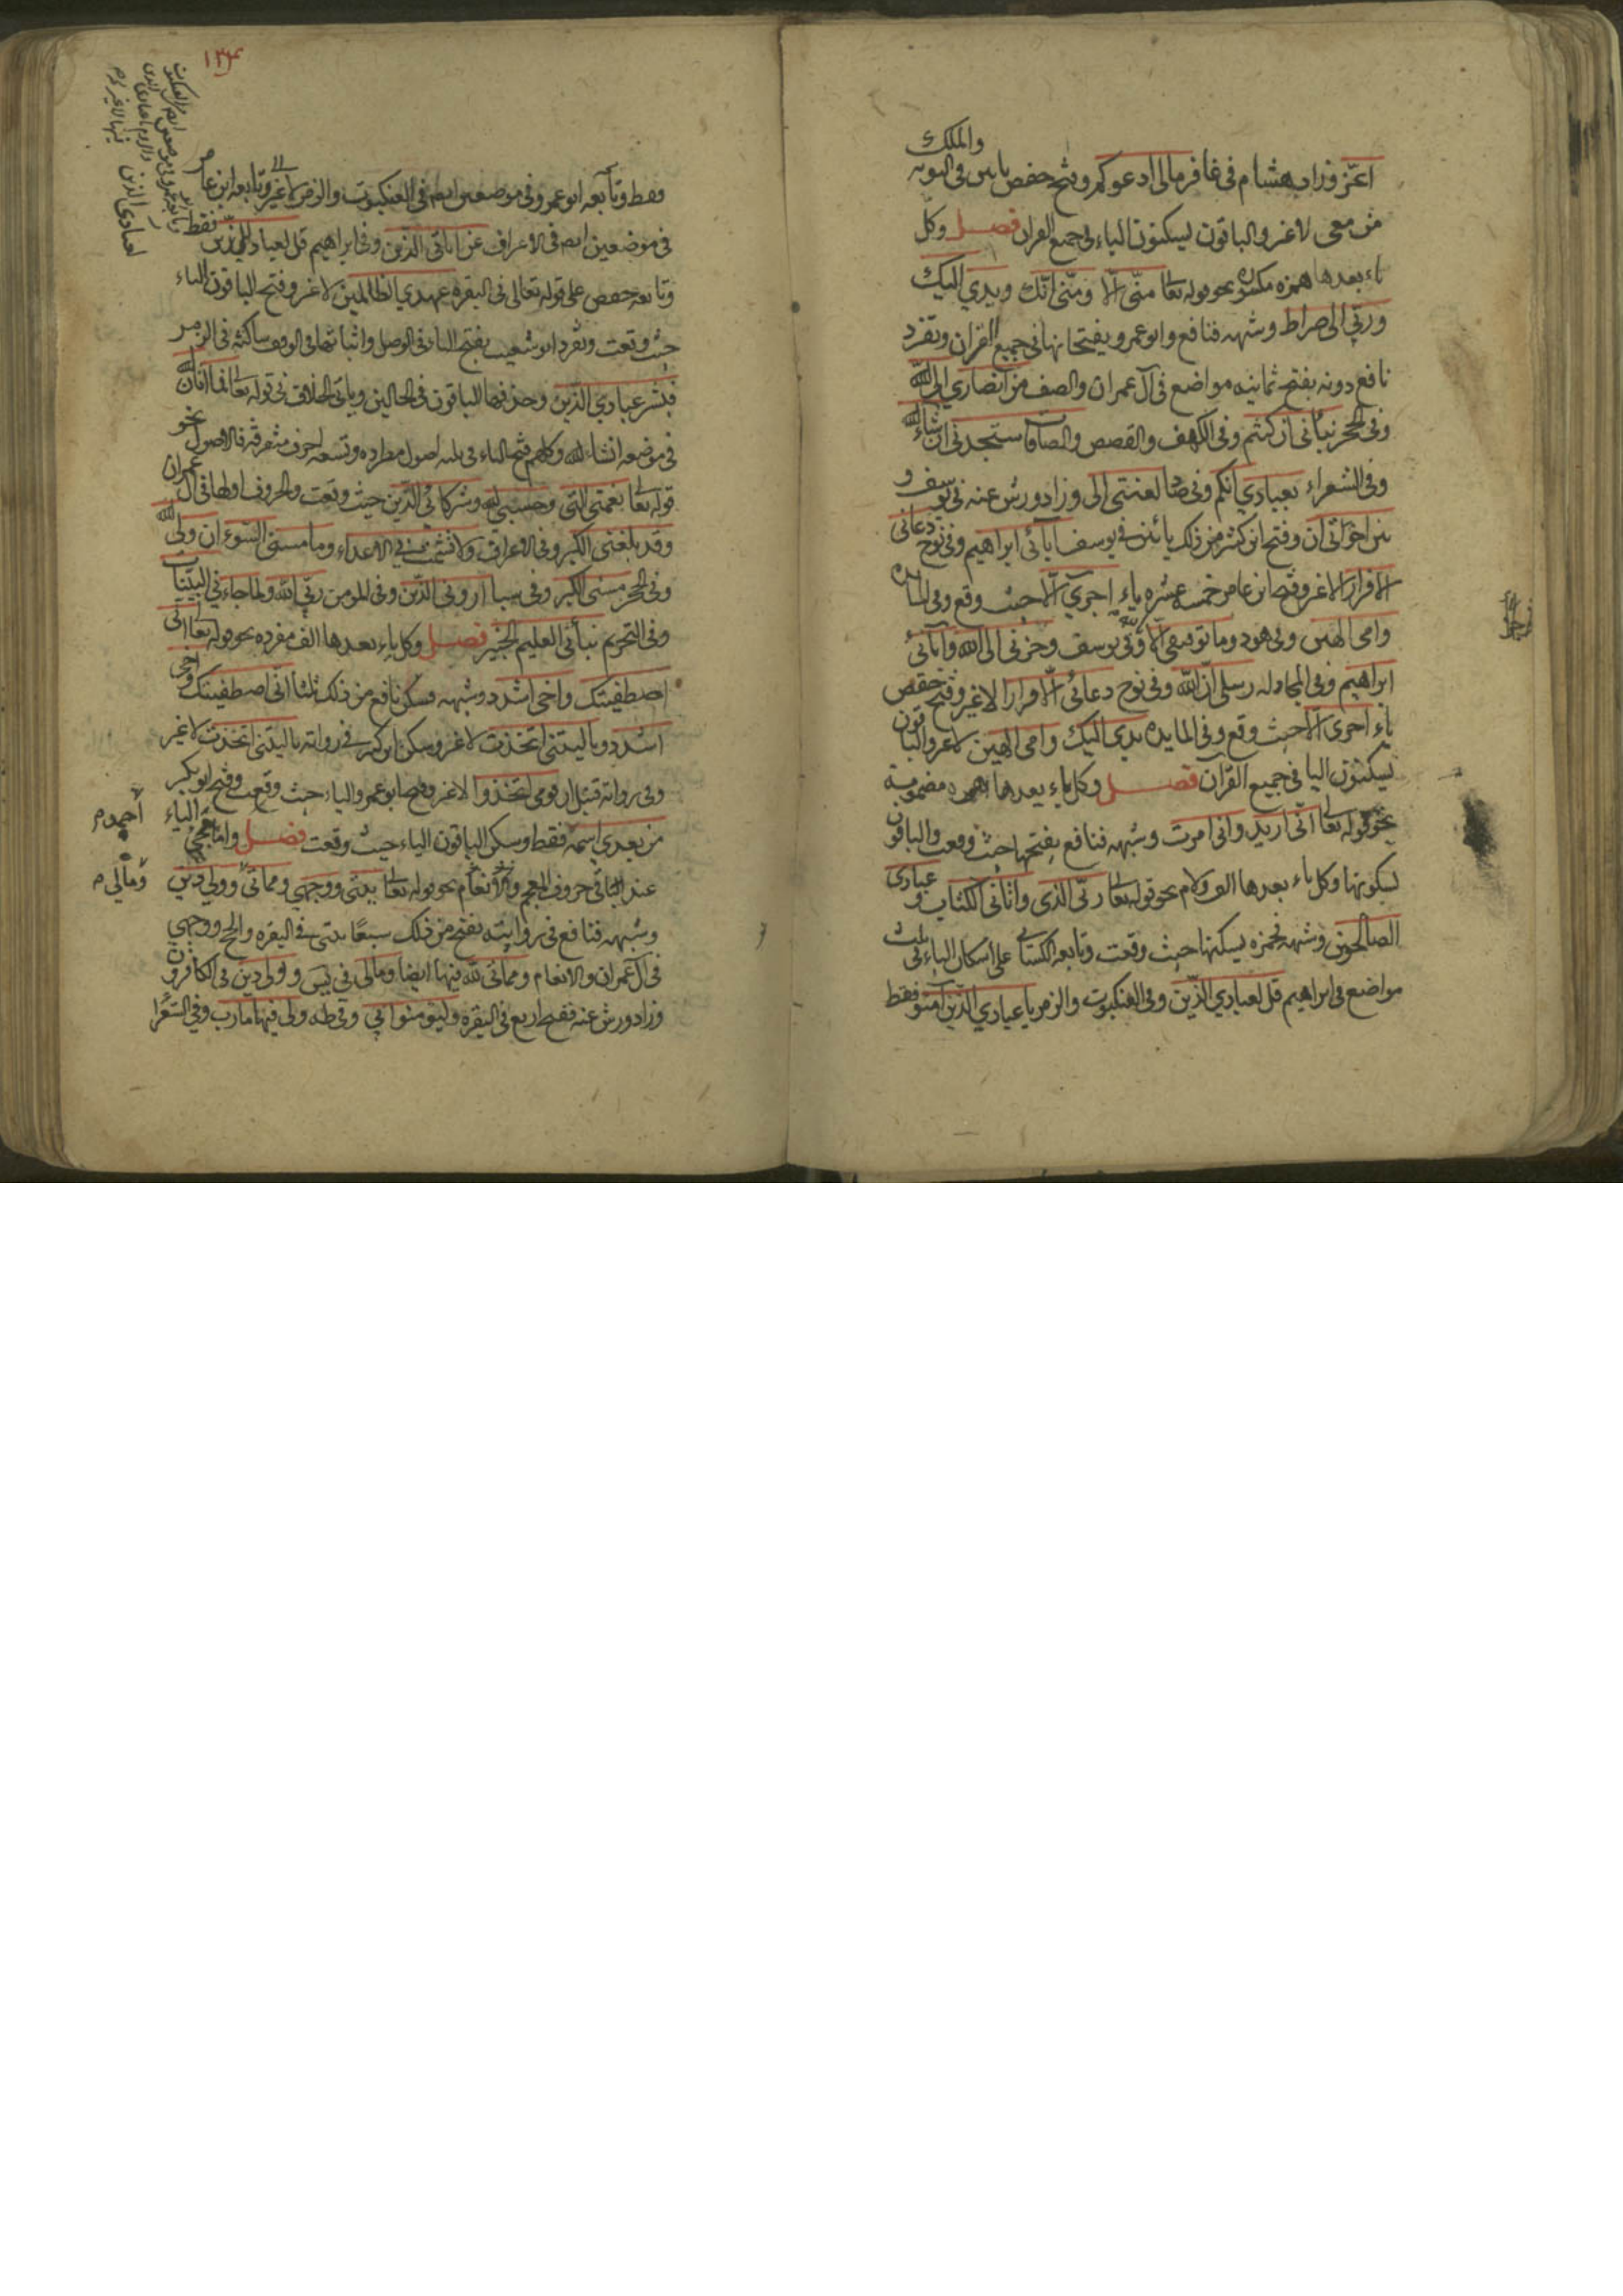 والملك
اعز وزاد هشام في غافر مالى ادعوكم وفتح حفص يائين في التوبه
من معى لا غير والباقون يسكنون الياء في جميع القران فصل وكل
ياء بعدها همزه مكسوره نحو قوله تعا منى الا ومنى انك ويدي اليك
وربي الى صراط وشبهه فنافع وابو عمرو يفتحانها في جميع القران وتفرد
نافع دونه بفتح ثمانيه مواضع في آل عمران والصف من انصاري الى الله
وفى الحجر بناتى ان كنتم وفى الكهف والقصص والصافات ستجدنى ان شاء الله
وفى الشعراء بعبادي انكم وفى ص لعنتى الى وزاد ورش عنه في يوسف و
بين اخوتى ان وفتح ابن كثير من ذلك يائين في يوسف آبائى ابراهيم وفى نوح دعائى
الا فرارا لا غير وفتح ابن عامر خمسه عشره ياء اجري الا حيث وقع وفى المائده
وامى الهين وفى هود وما توفيقى الا وفى يوسف وحزنى الى الله وآبائى
ابراهيم وفى المجادله رسلى ان الله وفى نوح دعائى الا فرارا لا غير وفتح حفص
ياء اجرى الا حيث وقع وفى المايده يدى اليك وامى الهين لا غير والباقون
يسكنون اليا في جميع القران فصل وكل ياء بعدها همزه مضمومة
نحو قوله تعا انى اريد وانى امرت وشبهه فنافع يفتحها حيث وقعت والباقون
يسكونها وكل ياء بعدها الف ولام نحو قوله تعا ربى الذى واتانى الكتاب و عبادى
الصالحون وشبهه فحمزه يسكنها حيث وقعت وتابعه الكسائي على اسكان الياء في ثلث
مواضع في ابراهيم قل لعبادي الذين وفى العنكبوت والزمر يا عبادي الذين آمنوا فقط
١٣٤
فقط وتابعه ابو عمرو في موضعين ايم في العنكبوت والزمر لا غير وتابعه ابن عامر
في موضعين ايم في الاعراف عن اياتى الذين وفى ابراهيم قل لعبادى الذين فقط
وتابعه حفص على قوله تعالى في البقره عهدي الظالمين لا غير وفتح الباقون الياء
حيث وقعت وتفرد ابو شعيب بفتح الياء في الوصل واثباتها في الوقف ساكنة في الزمر
فبشر عبادي الذين وحذفها الباقون في الحالين وياتى الخلاف في قوله تعا فما آتان الله
في موضعه ان شاء الله وكلهم فتح الياء في ثلثه اصول مطرده وتسعه احرف متفرقه فالاصول نحو
قوله تعا نعمتى التى وحسبى الله وشركائى الذين حيث وقعت والحروف اولها في آل عمران
وقد بلغنى الكبر وفى الاعراف ولا تشمت بي الاعداء وما مسنى السوء ان ولى الله
وفى الحجر مسنى الكبر وفى سبا ارونى الذين وفى المومن ربي الله ولما جاءنى البينات
وفى التحريم نبأنى العليم الخبير فصل وكل ياء بعدها الف مفرده نحو قوله تعا انى
اصطفيتك واخى اشدد وشبهه فسكن نافع من ذلك ثلثا انى اصطفيتك واخى
اشدد ويا ليتنى اتخذت لا غير وسكن ابن كثير في روايته يا ليتنى اتخذت لا غير
وفى روايه قنبل ان قومى اتخذوا لا غير وفتح ابو عمرو الياء حيث وقعت وفتح ابو بكر
من بعدي اسمه فقط وسكن الباقون الياء حيث وقعت فصل واما مجئ الياء
عند باقى حروف المعجم نحو قوله تعا بيتى ووجهي ومماتى وولى دين
وشبهه فنافع في روايتيه يفتح من ذلك سبعًا بيتى في البقره والحج ووجهي
في آل عمران والانعام ومماتى لله فيها ايضا ومالى في يس وولى دين في الكافرون
وزاد ورش عنه فقط اربع في البقره وليؤمنوا بي وفى طه ولى فيها مارب وفى الشعرا
ومالى م